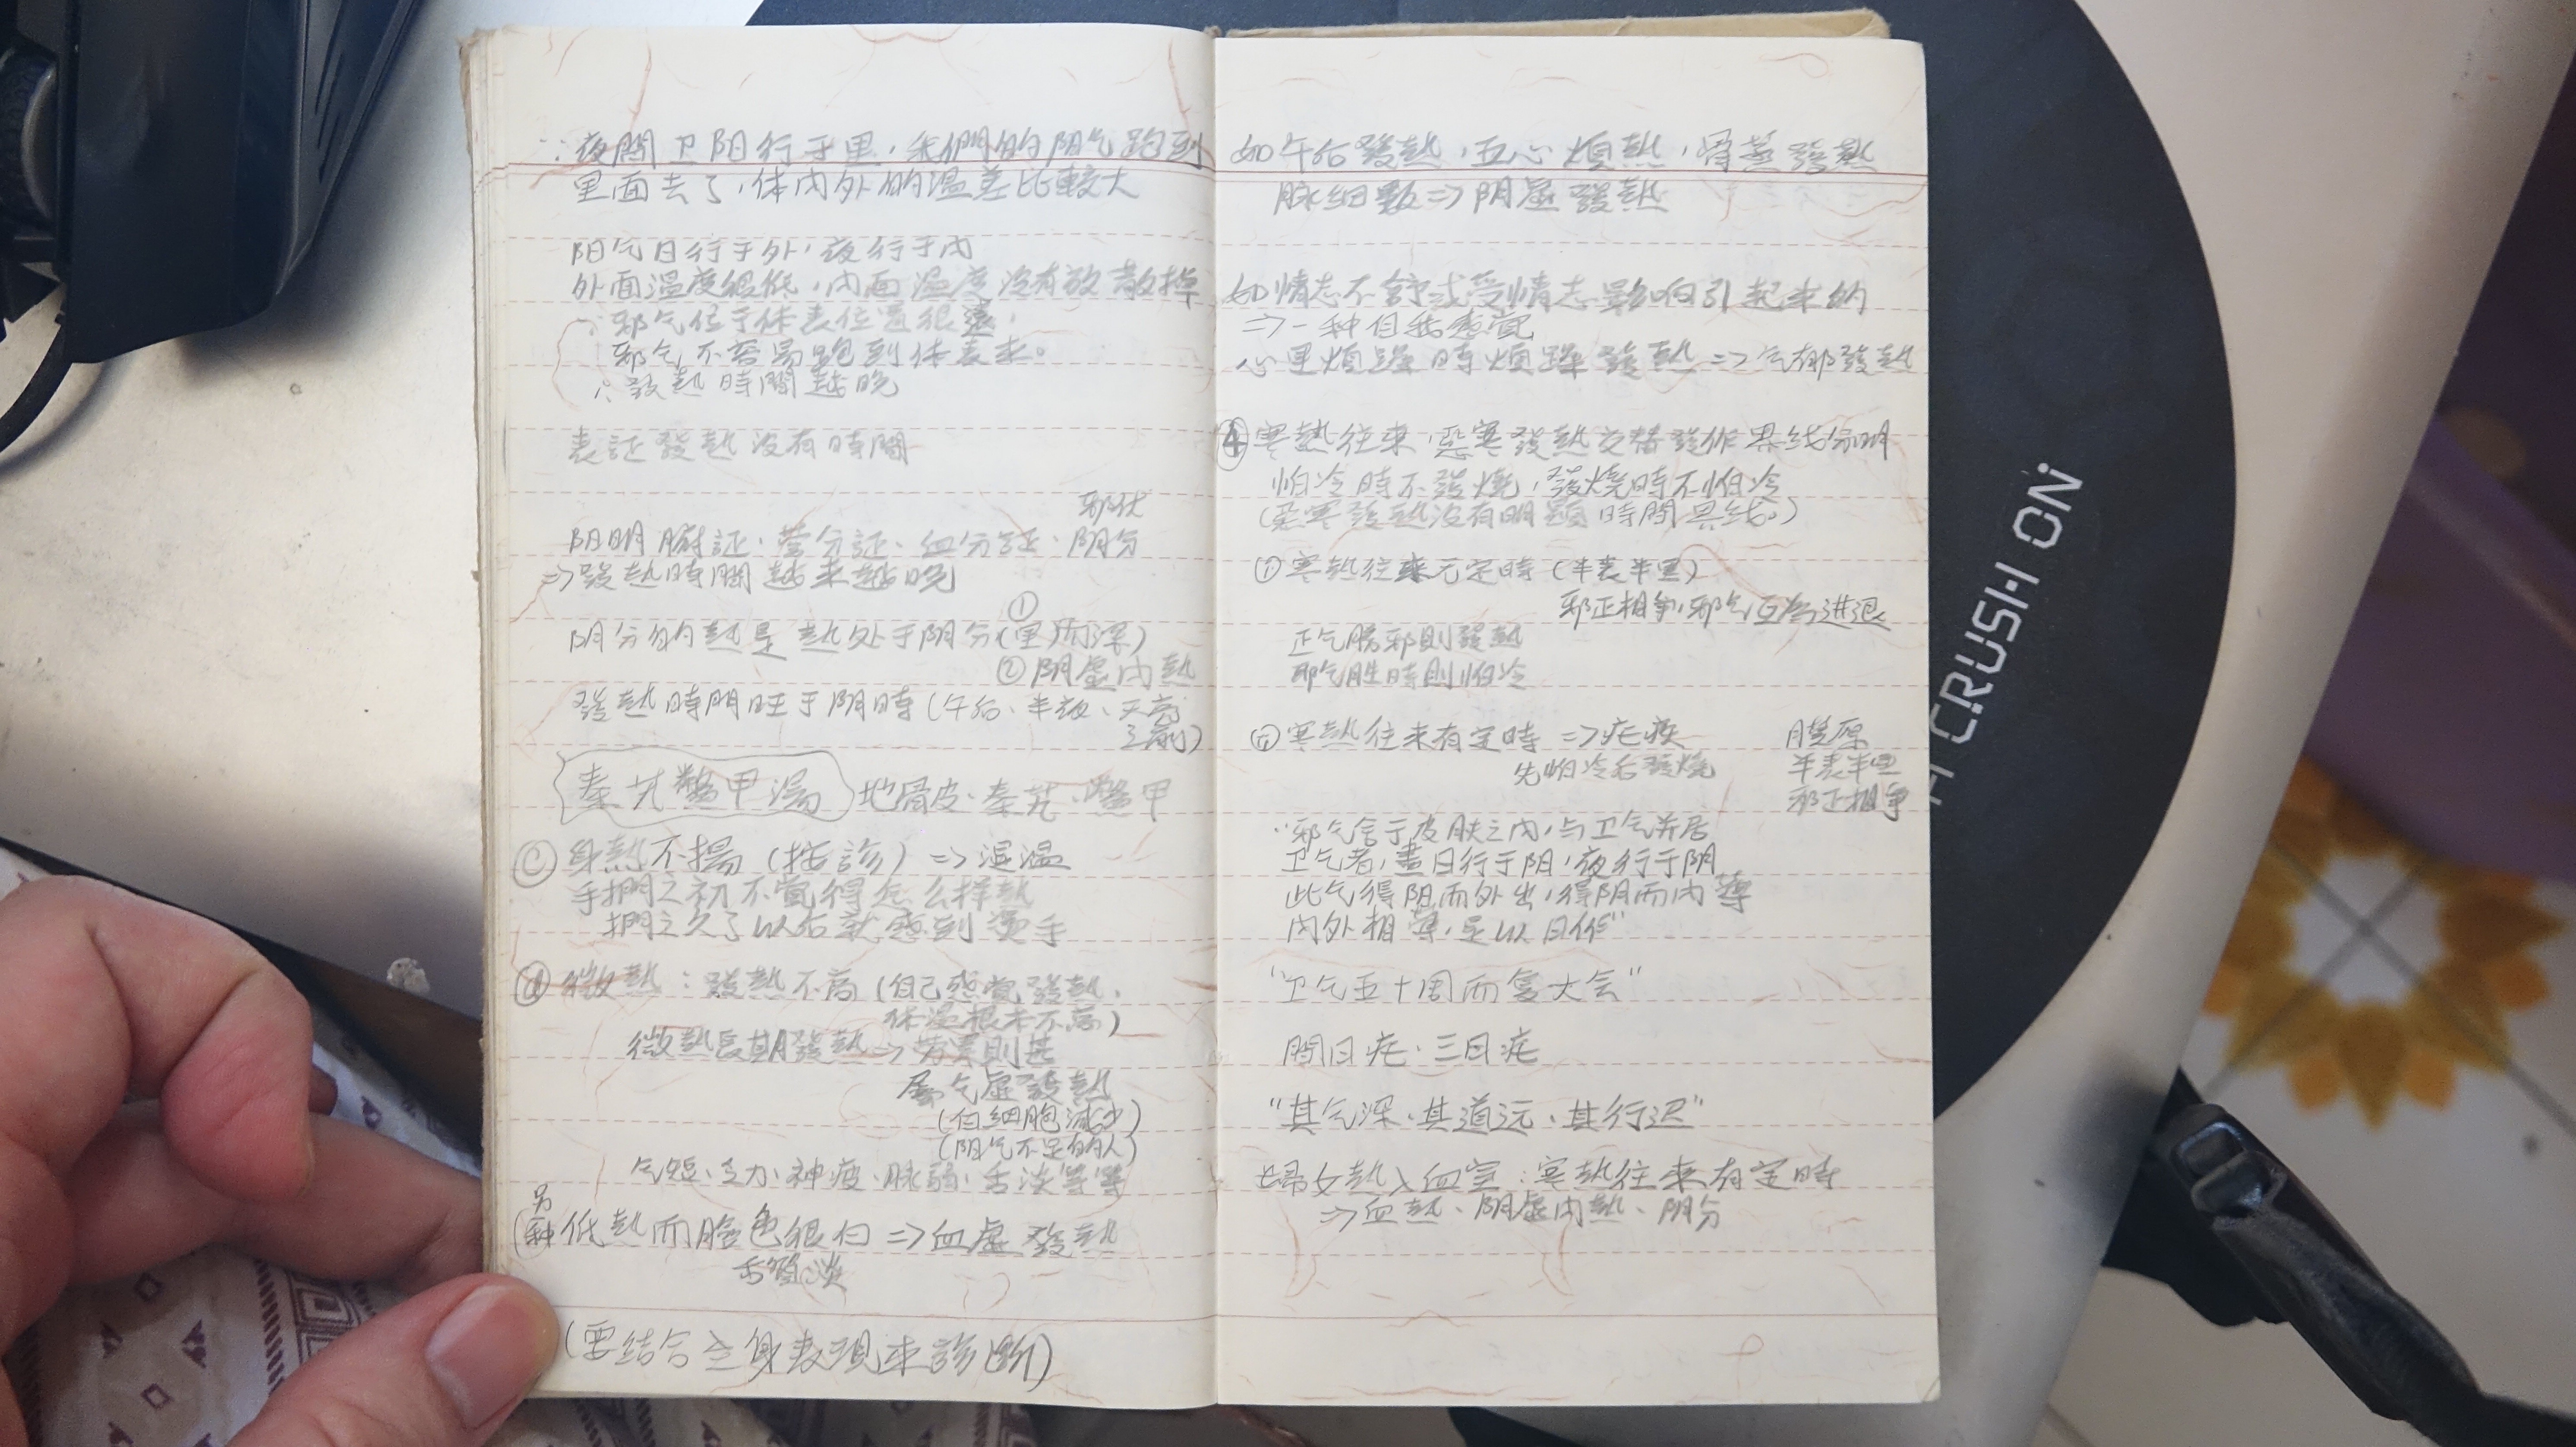 ∵夜間卫阳行于里，我們的阴气跑到
里面去了，体内外的温差比較大
阳气日行于外，夜行于内
外面温度很低，内面温度没有放散掉
∵邪气位于体表位置很
邪气不容易跑到体表来。
∴發熱時間越晚
表証發熱没有時間
邪伏
阴明腑証、营分証、血分証、阴分
⇒發熱時間越来越晚
①
阴分的熱是熱处于阴分(里,而深)
②阴虚内熱
發熱時間旺于阴時(午后、半夜、天亮
之前)
秦艽鱉甲湯 地骨皮、秦艽、鱉甲
ⓒ身熱不揚 (按診) ⇒ 湿温
手捫之初不覺得怎么样熱
捫之久了以后就感到燙手
ⓓ微熱：發熱不高(自己感覺發熱，
体温根本不高)
微熱長期發熱⇒劳累則甚
屬气虚發熱
(白細胞減少)
(阴气不足的人)
气短、乏力、神疲、脉弱、舌淡等等
另
(种 低熱而臉色很白⇒血虚發熱
舌質淡
(要结合全身表现来診断)
如午后發熱，五心煩熱，骨蒸發熱
脉細數⇒阴虚發熱
如情志不舒或受情志影响引起来的
⇒一种自我感覚
心里煩躁時煩躁發熱⇒气郁發熱
④寒熱往来，惡寒發熱交替發作界线分明
怕冷時不發燒，發燒時不怕冷
(惡寒發熱没有明顯時間界线。)
①寒熱往来无定時(半表半里)
邪正相争，邪气互为進退
正气勝邪則發熱
邪气胜時則怕冷
ⓑ寒熱往来有定時⇒疟疾 膜原
先怕冷后發燒 半表半里
邪正相争
“邪气舍于皮肤之内，与卫气并居
卫气者，晝日行于阳，夜行于阴
此气得阳而外出，得阴而内薄
内外相薄，是以日作”
“卫气五十周而复大会”
間日疟、三日疟
“其气深、其道远、其行迟”
婦女熱入血室：寒熱往来有定時
⇒血熱、阴虚内熱、阴分
H CRUSH ON